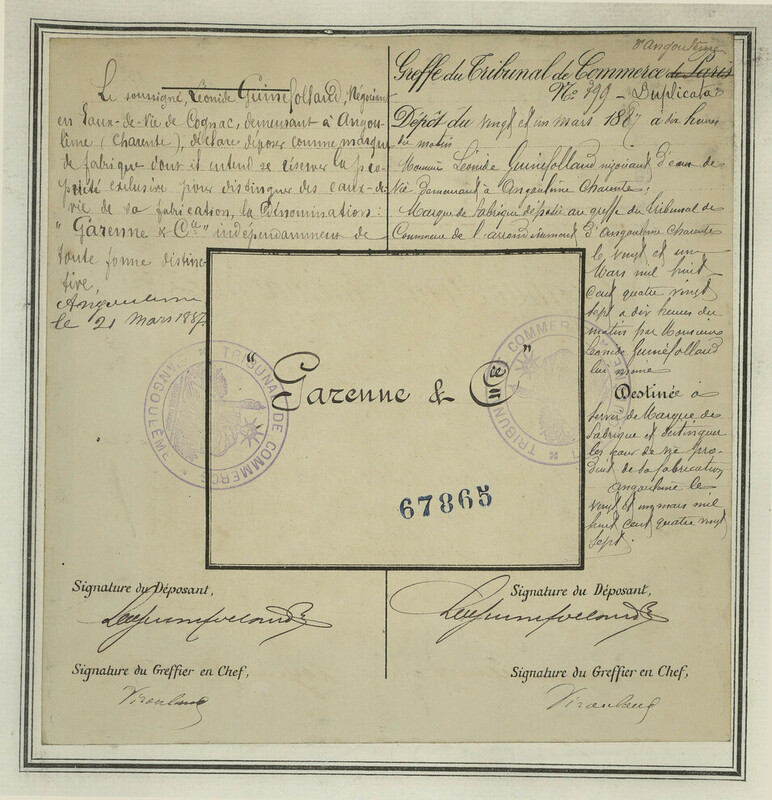 Le soussigné, Léonide Guinefolland, Négociant
en Eaux-de-Vie de Cognac, demeurant à Angou-
lême (Charente), déclare déposer comme marque
de fabrique dont il entend se réserver la pro-
priété exclusive pour distinguer des eaux-de-
vie de sa fabrication, la Dénomination:
"Garenne & Cie" indépendamment de
toute forme distinc-
tive,
Angoulême
le 21 Mars 1887.
d'Angoulême
Greffe du Tribunal de Commerce de Paris
No: 399 - Duplicata
Dépôt du vingt et un mars 1887 à dix heures
du matin
Monsieur Léonide Guinefolland négociant d'eaux de
Vie demeurant à Angoulême Charente;
Marque de fabrique déposée au greffe du Tribunal de
Commerce de l'arrondissement d'Angoulême Charente
le vingt et un
Mars mil huit
cent quatre vingt
sept à dix heures du
matin par Monsieur
Léonide Guinefolland
lui même
Destinée à
servir de Marque de
fabrique et distinguer
les eaux de vie pro-
duit de sa fabrication
Angoulême le
vingt et un mars mil
huit cent quatre vingt
sept.
"Garenne & Cie"
67865
TRIBUNAL DE COMMERCE
ANGOULÊME
TRIBUNAL DE COMMERCE
Signature du Déposant,
Signature du Déposant,
Signature du Greffier en Chef,
Signature du Greffier en Chef,